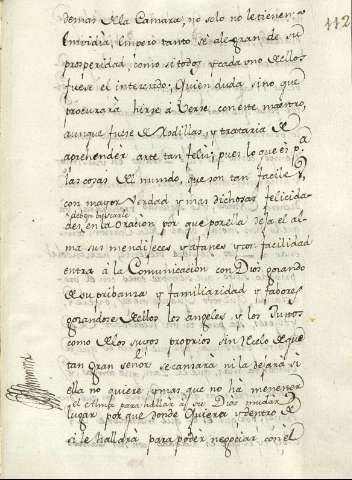 112
demas de la Camara, no solo no le tienen
Embidia, Empero tanto se alegran de su
prosperidad, como si todos, y cada uno de ellos
fuese el interesado; Quien duda sino que
procurará hirse à verse, con este maestro,
aunque fuese de Rodillas, y trataria de
aprehender arte tan feliz; pues lo que es pa
las cosas del mundo, que son tan faciles,
con mayor verdad y mas dichosas felicida
deben buscarse
des, en la Oracion, por que por ella deja el al
ma sus mendigueces y afanes y con facilidad
entra à la Comunicacion con Dios gozando
de su pribanza y familiaridad y fabores
gozandose de ellos los angeles, y los Justos
como de los suyos proprios sin recelo de que
tan gran señor se cansará ni la dejará si
ella no quiere, y mas que no ha menester
el Alma para hallar à su Dios mudar
lugar por que donde Quiera y dentro de
si le hallará para poder negociar con el